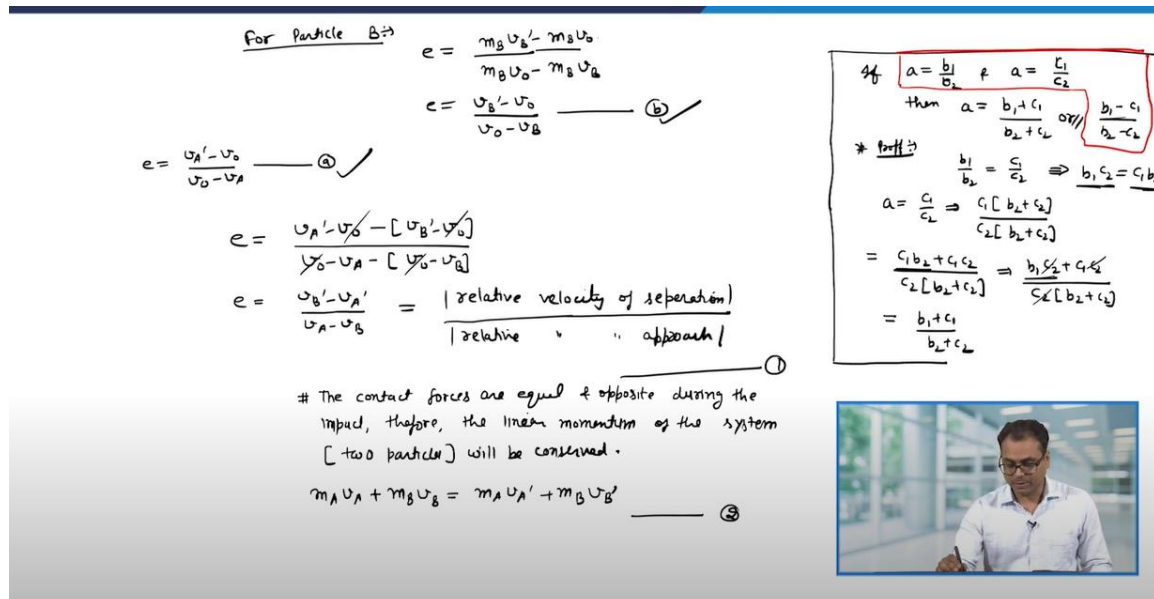 For Particle B:→
e = (m_B v_B' - m_B v_0) / (m_B v_0 - m_B v_B)
e = (v_B' - v_0) / (v_0 - v_B) ——— ⓑ ✓
e = (v_A' - v_0) / (v_0 - v_A) ——— ⓐ ✓
e = (v_A' - v_0 - [v_B' - v_0]) / (v_0 - v_A - [v_0 - v_B])
e = (v_B' - v_A') / (v_A - v_B) = |relative velocity of seperation| / |relative " " approach|
——— ①
# The contact forces are equal & opposite during the
impact, thefore, the linear momentum of the system
[two particles] will be conserved.
m_A v_A + m_B v_B = m_A v_A' + m_B v_B'
——— ②
If a = b₁/b₂ & a = c₁/c₂
then a = (b₁ + c₁) / (b₂ + c₂) or// (b₁ - c₁) / (b₂ - c₂)
* Proff:→
b₁/b₂ = c₁/c₂ ⇒ b₁c₂ = c₁b
a = c₁/c₂ ⇒ c₁[b₂ + c₂] / c₂[b₂ + c₂]
= (c₁b₂ + c₁c₂) / c₂[b₂ + c₂] ⇒ (b₁c₂ + c₁c₂) / c₂[b₂ + c₂]
= (b₁ + c₁) / (b₂ + c₂)